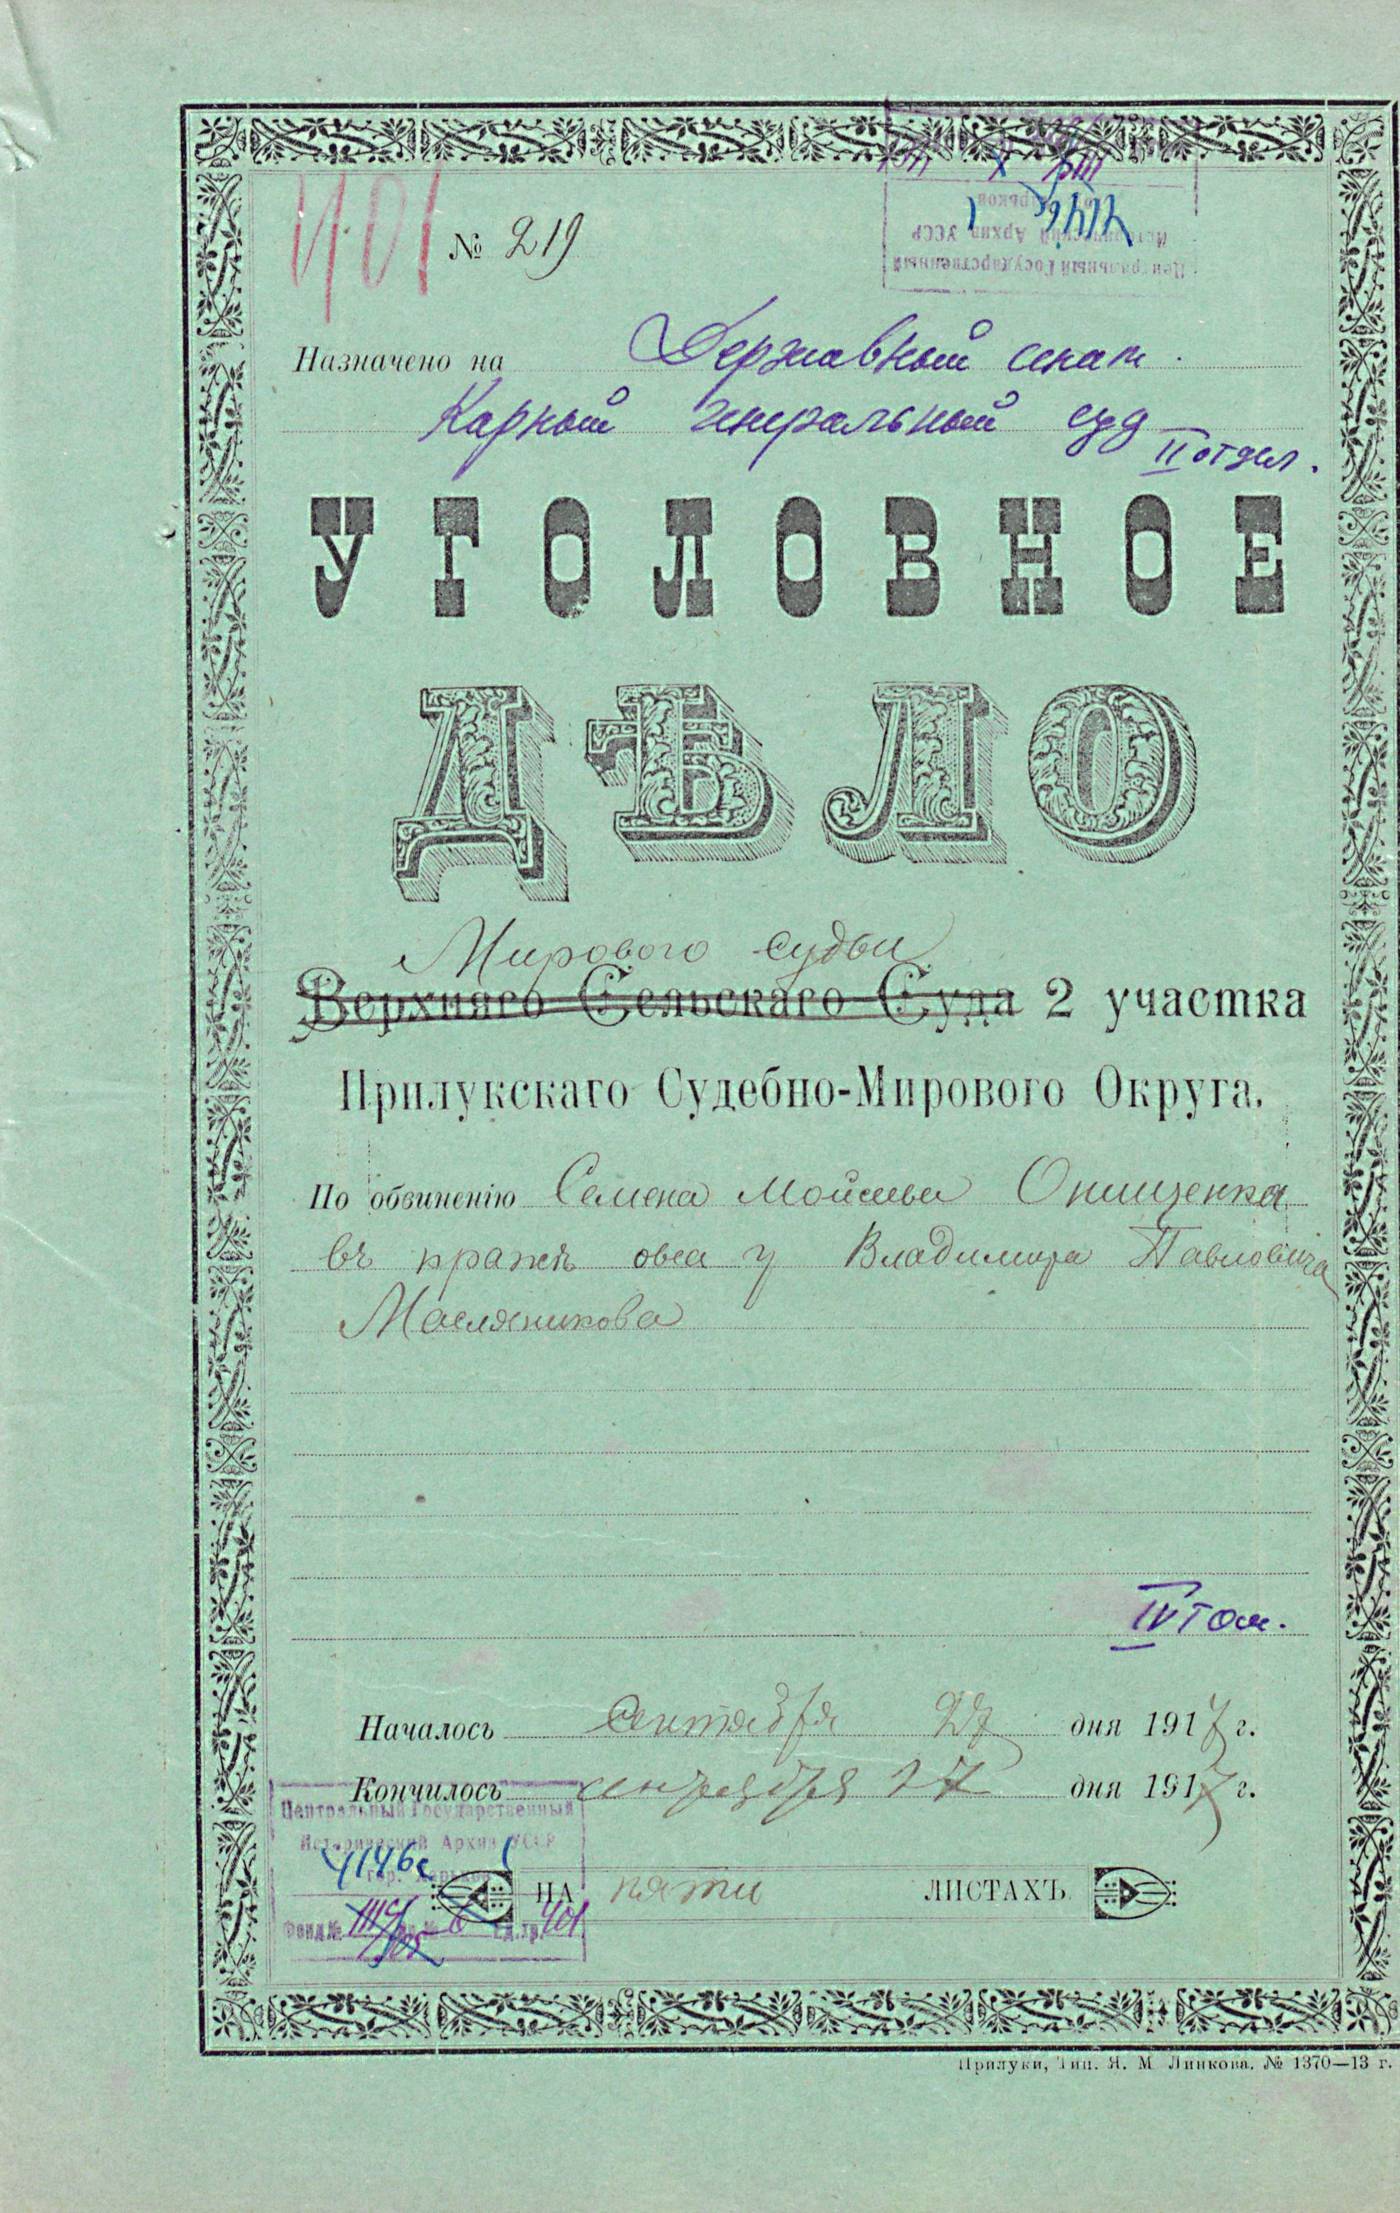 401
№ 219
Центральный Государственный
Исторический Архив УССР
Назначено на Державный сенат.
Карный генеральный суд
II отдел.
УГОЛОВНОЕ
ДѢЛО
Мирового судьи
Верхняго Сельскаго Суда 2 участка
Прилукскаго Судебно-Мирового Округа.
По обвиненію Семена Мойсеева Онищенка
въ кражѣ овса у Владимира Павловича
Масляникова
IV том.
Началось сентября 27 дня 1917 г.
Кончилось сентября 27 дня 1917 г.
Центральный Государственный
Исторический Архив УССР
гор. Харьков
НА пяти ЛИСТАХЪ
Фонд № Оп. № 6 Ед. хр. 401
Прилуки, Тип. Я. М. Линкова. № 1370—13 г.